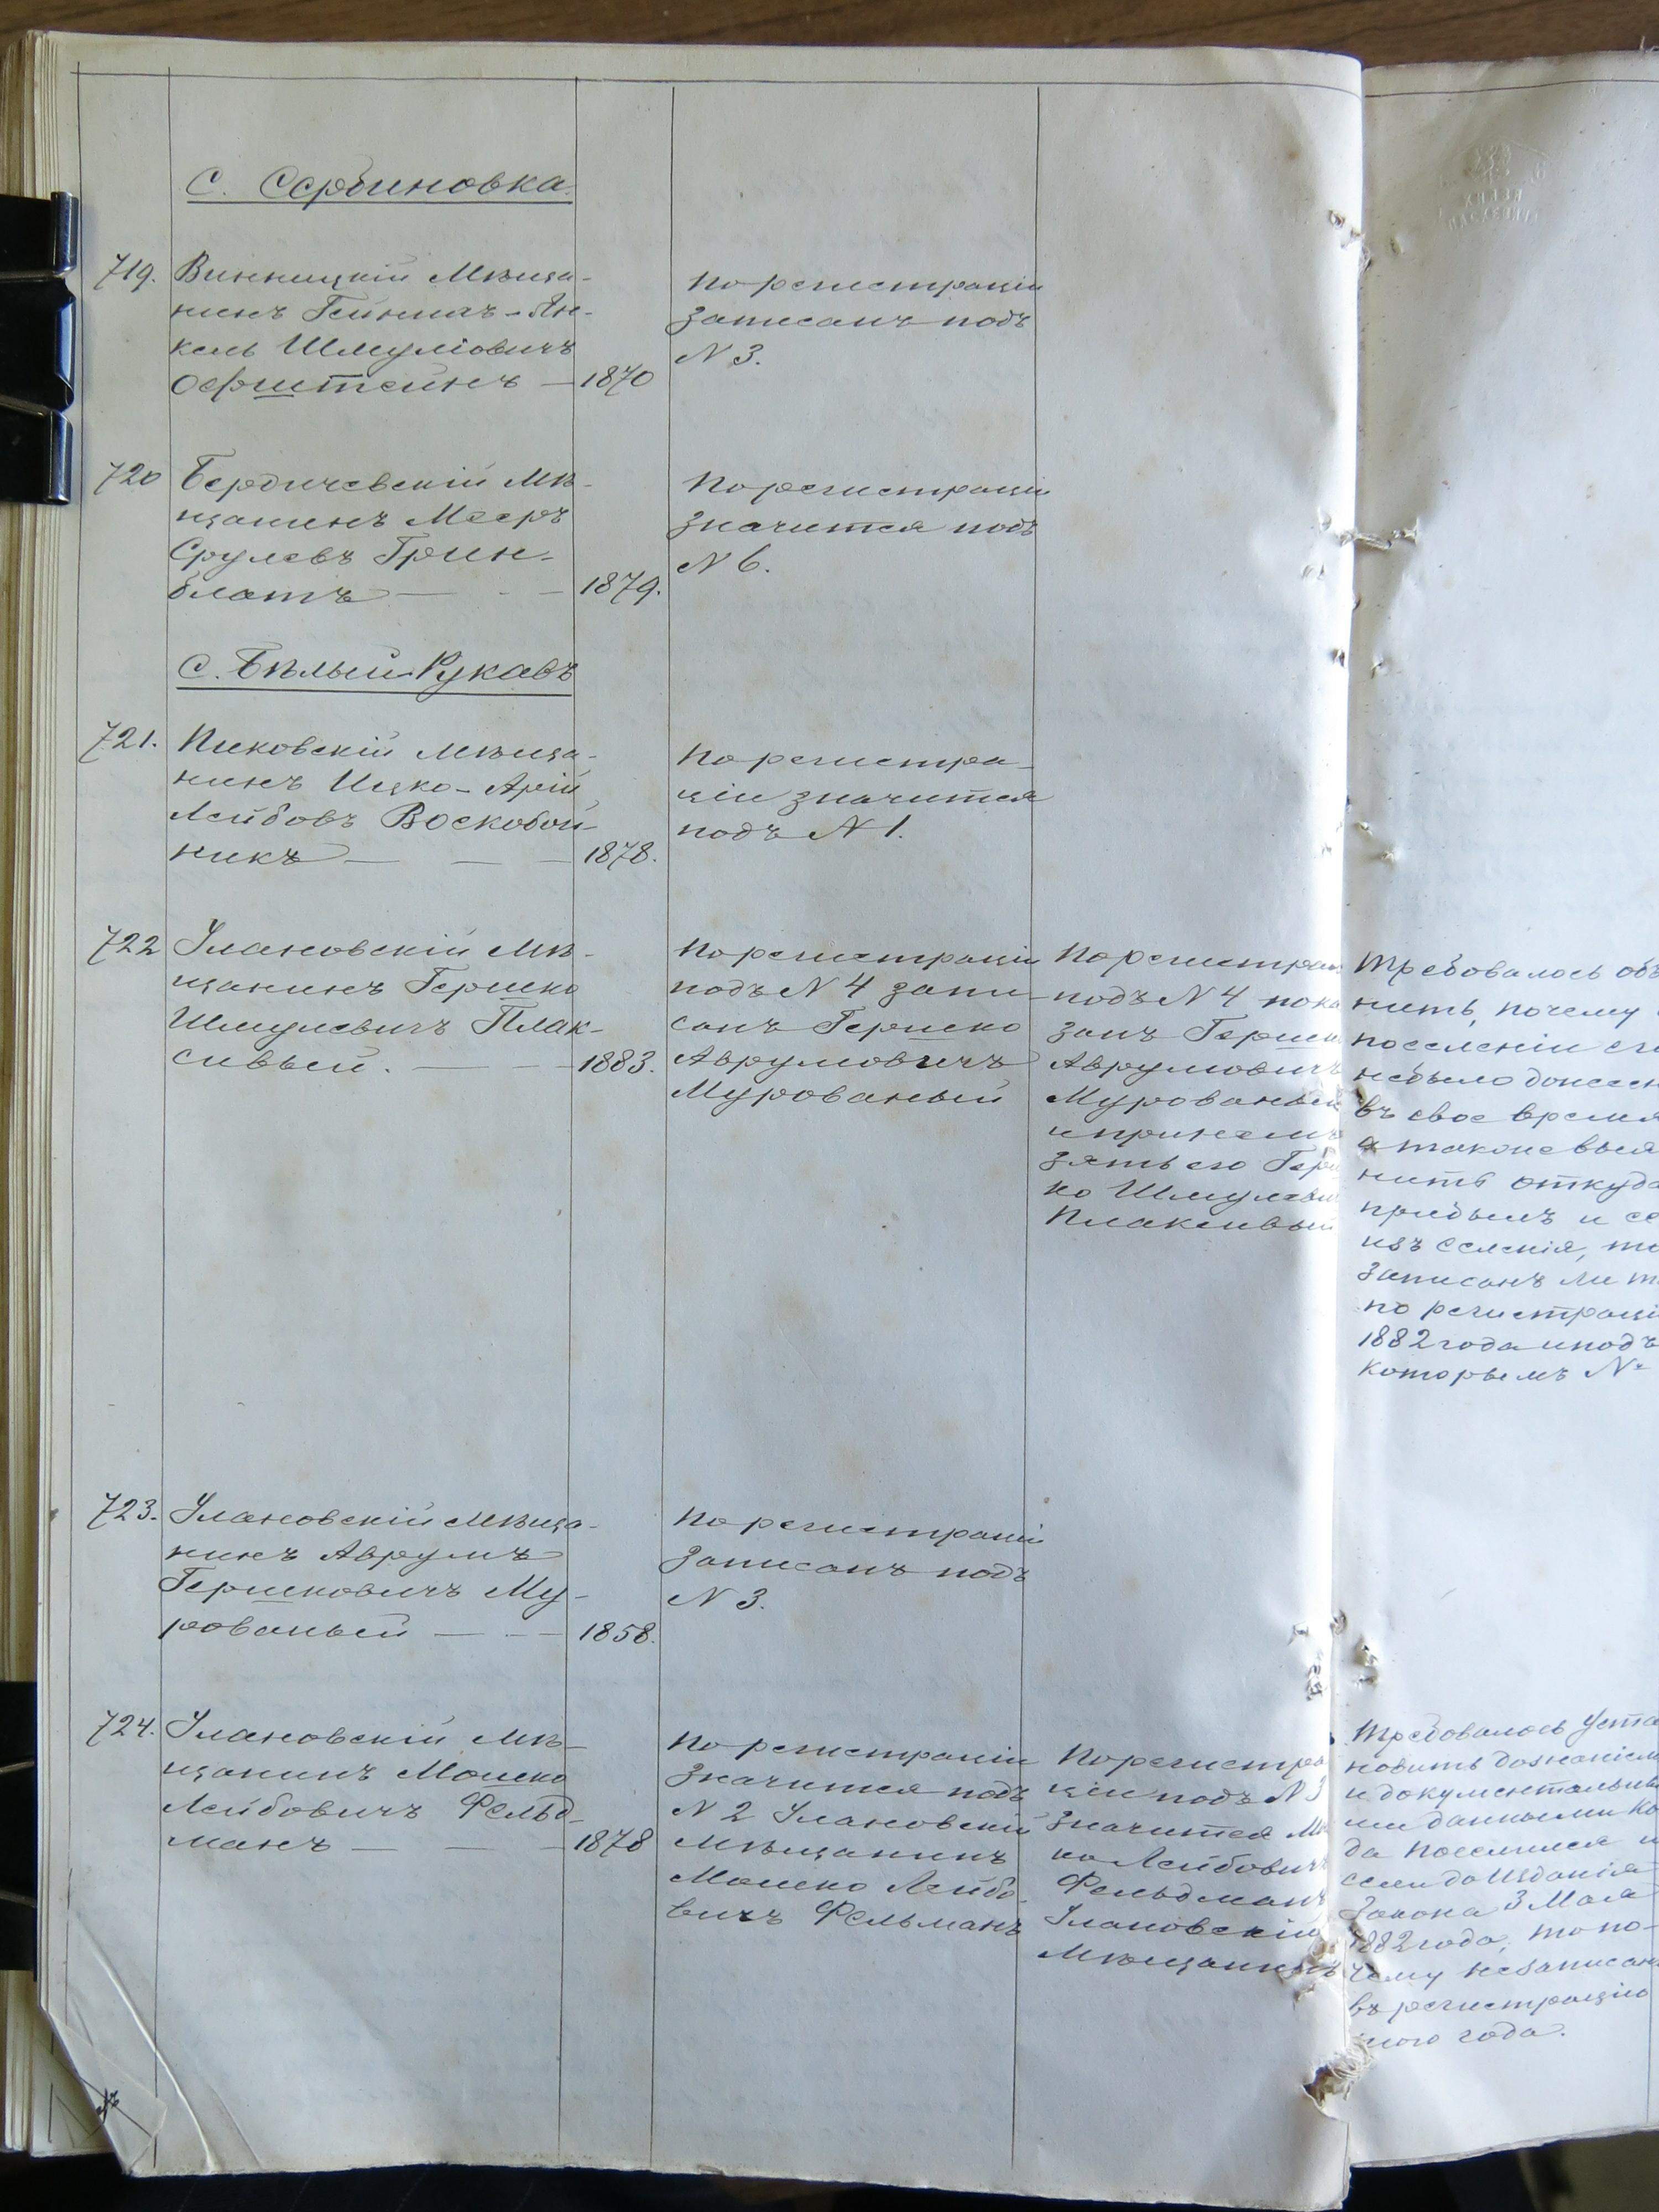 С. Сербиновка.
719.
Винницкій Мѣща-
нинъ Гейнихъ-Ян-
кель Шмуліовичъ
Офштейнъ — 1870
По регистраціи
записанъ подъ
N 3.
720
Бердичевскій Мѣ-
щанинъ Мееръ
Срулевъ Грин-
блатъ — - — 1879.
По регистраціи
значится подъ
N 6.
С. Бѣлый-Рукавъ
721.
Пиковскій мѣща-
нинъ Ицко-Арій
Лейбовъ Воскобой-
никъ — — — 1878.
По регистра-
ціи значится
подъ N 1.
722
Улановскій Мѣ-
щанинъ Гершко
Шмулевичъ Плак-
сивый. — — 1883.
По регистраціи
подъ N 4 запи-
санъ Гершко
Аврумовичъ
Мурованый
По регистрац
подъ N 4 пока
занъ Гершк
Аврумовичъ
Мурованый
и при немъ
зять его Герш
ко Шмулеви
Плаксивый
Требовалось объ
нить, почему
поселеніи его
небыло донесен
въ свое время
а также выя
нить откуда
прибылъ и ес
изъ селенія, то
записанъ ли т
по регистраці
1882 года и подъ
которымъ №
723.
Улановскій мѣща-
нинъ Аврумъ
Гершковичъ Му-
рованый — - — 1858.
По регистраціи
записанъ подъ
N 3.
724.
Улановскій Мѣ-
щанинъ Мошко
Лейбовичъ Фельд-
манъ — — — 1878
По регистраціи
значится подъ
N 2 Улановскій
мѣщанинъ
Мошко Лейбо-
вичъ Фельманъ
По регистра
ціи подъ N 3
значится Мо
ко Лейбовичъ
Фельдманъ
Улановскій
Мѣщанинъ
Требовалось уста
новить дознаніем
и документальны
ми данными ко
да поселился и
если до изданія
Закона 3 Мая
1882 года, то по-
чему незаписан
въ регистрацію
года.